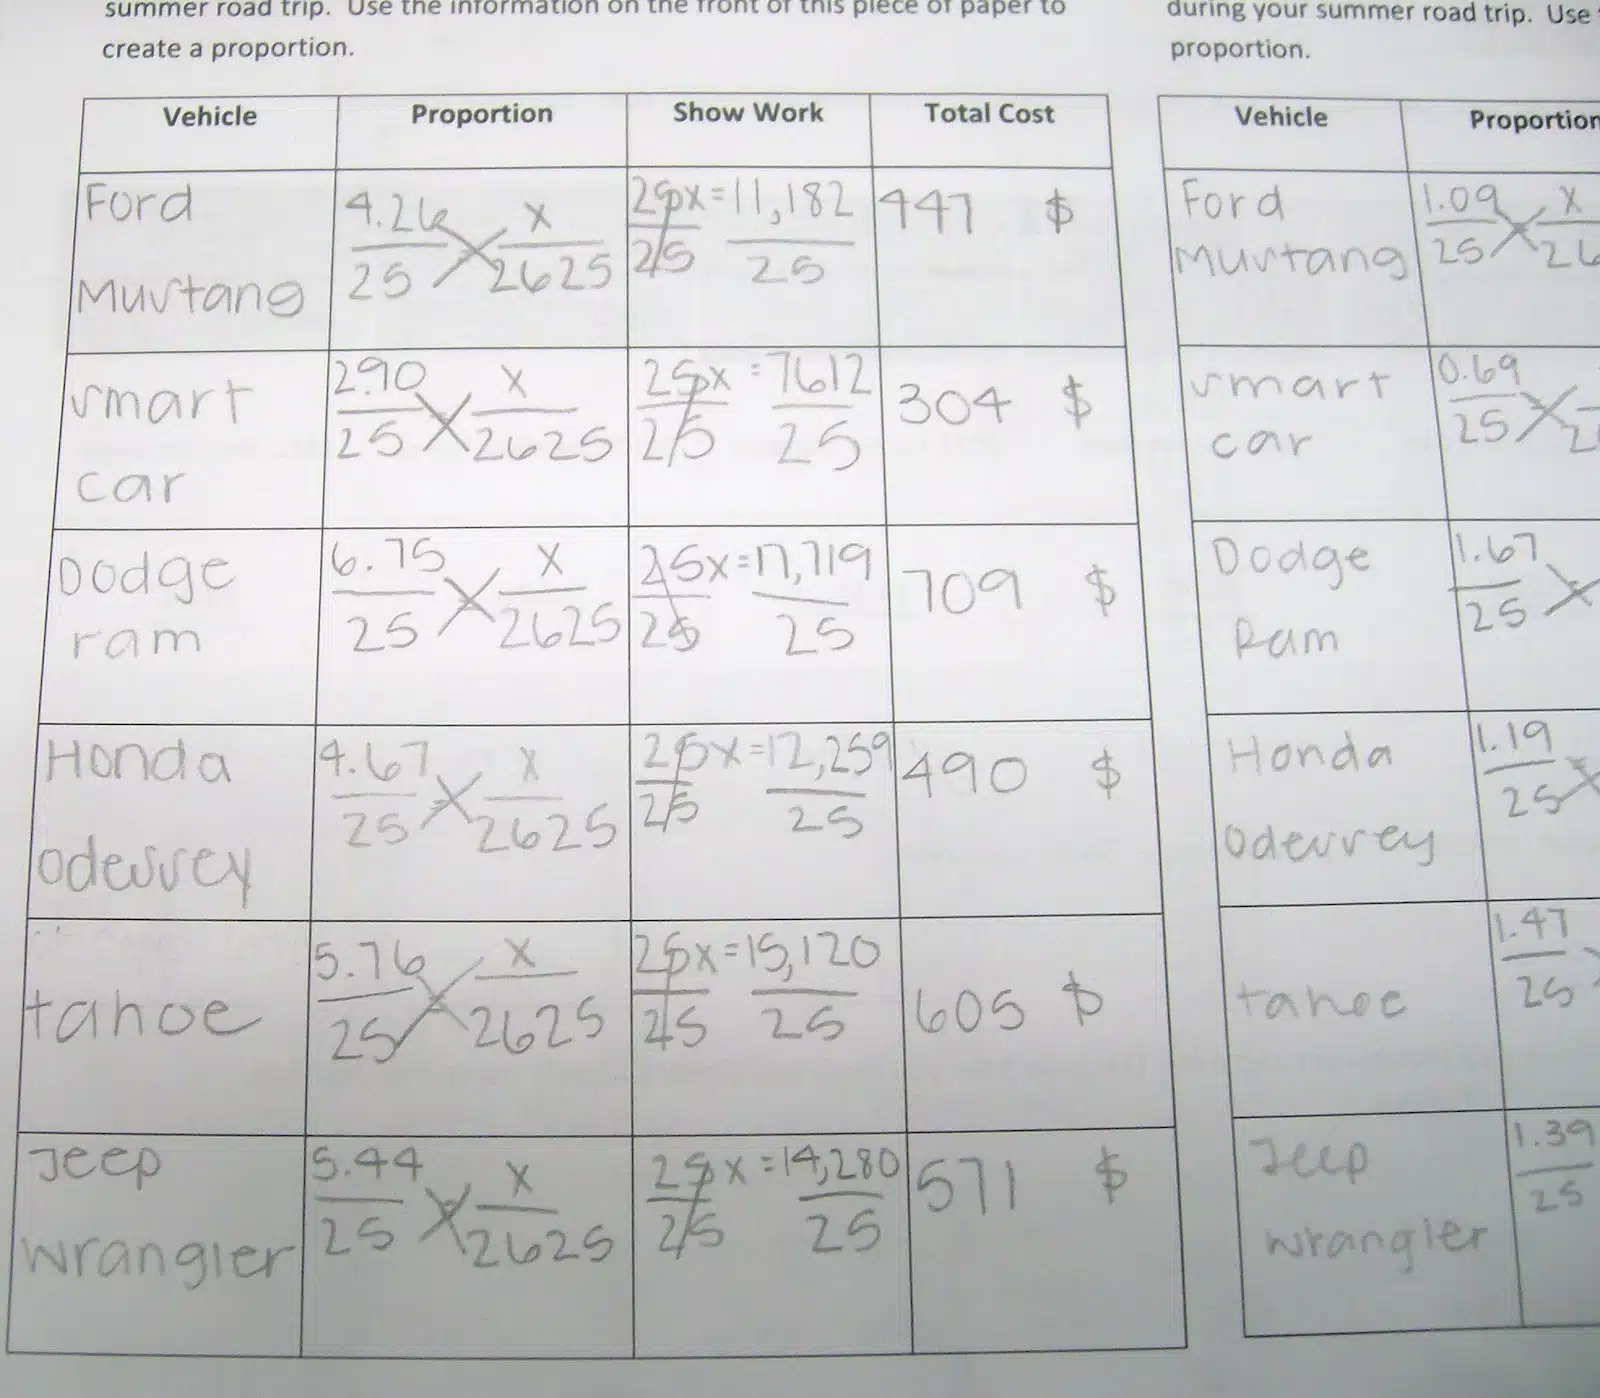 summer road trip. Use the information on the front of this piece of paper to
create a proportion.
Vehicle Proportion Show Work Total Cost
Ford Mustang
4.26 x
25 2625
25x=11,182
25 25
447 $
smart car
2.90 x
25 2625
25x=7612
25 25
304 $
Dodge ram
6.75 x
25 2625
25x=17,719
25 25
709 $
Honda odessey
4.67 x
25 2625
25x=12,259
25 25
490 $
tahoe
5.76 x
25 2625
25x=15,120
25 25
605 $
Jeep wrangler
5.44 x
25 2625
25x=14,280
25 25
571 $
during your summer road trip. Use
proportion.
Vehicle Proportion
Ford Mustang
1.09 x
25 26
smart car
0.69
25 2
Dodge Ram
1.67
25
Honda odessey
1.19
25
tahoe
1.47
25
Jeep wrangler
1.39
25